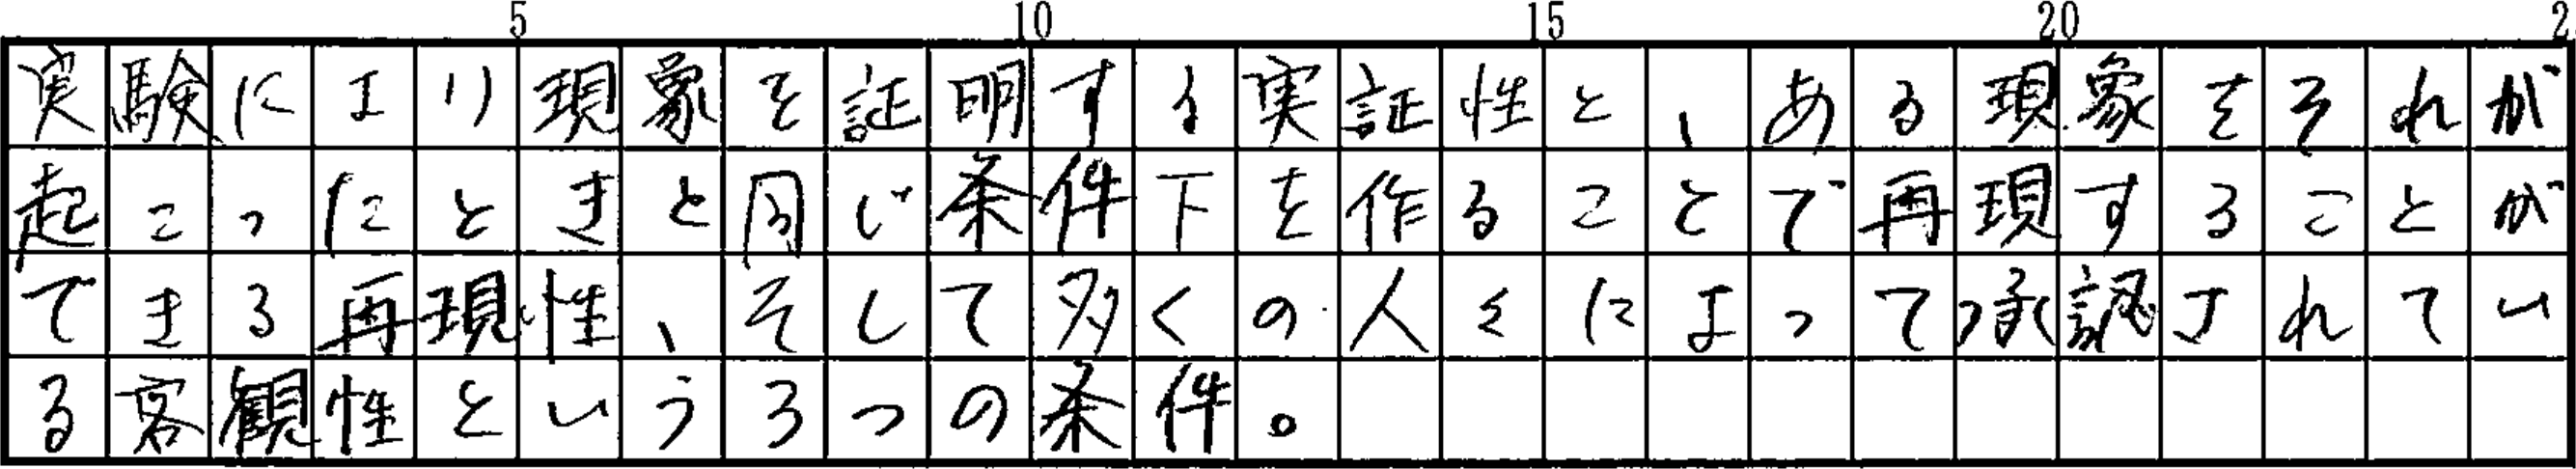 5 10 15 20 2
実験により現象を証明する実証性と、ある現象をそれが
起こったときと同じ条件下を作ることで再現することが
できる再現性、そして多くの人々によって承認されてい
る客観性という3つの条件。